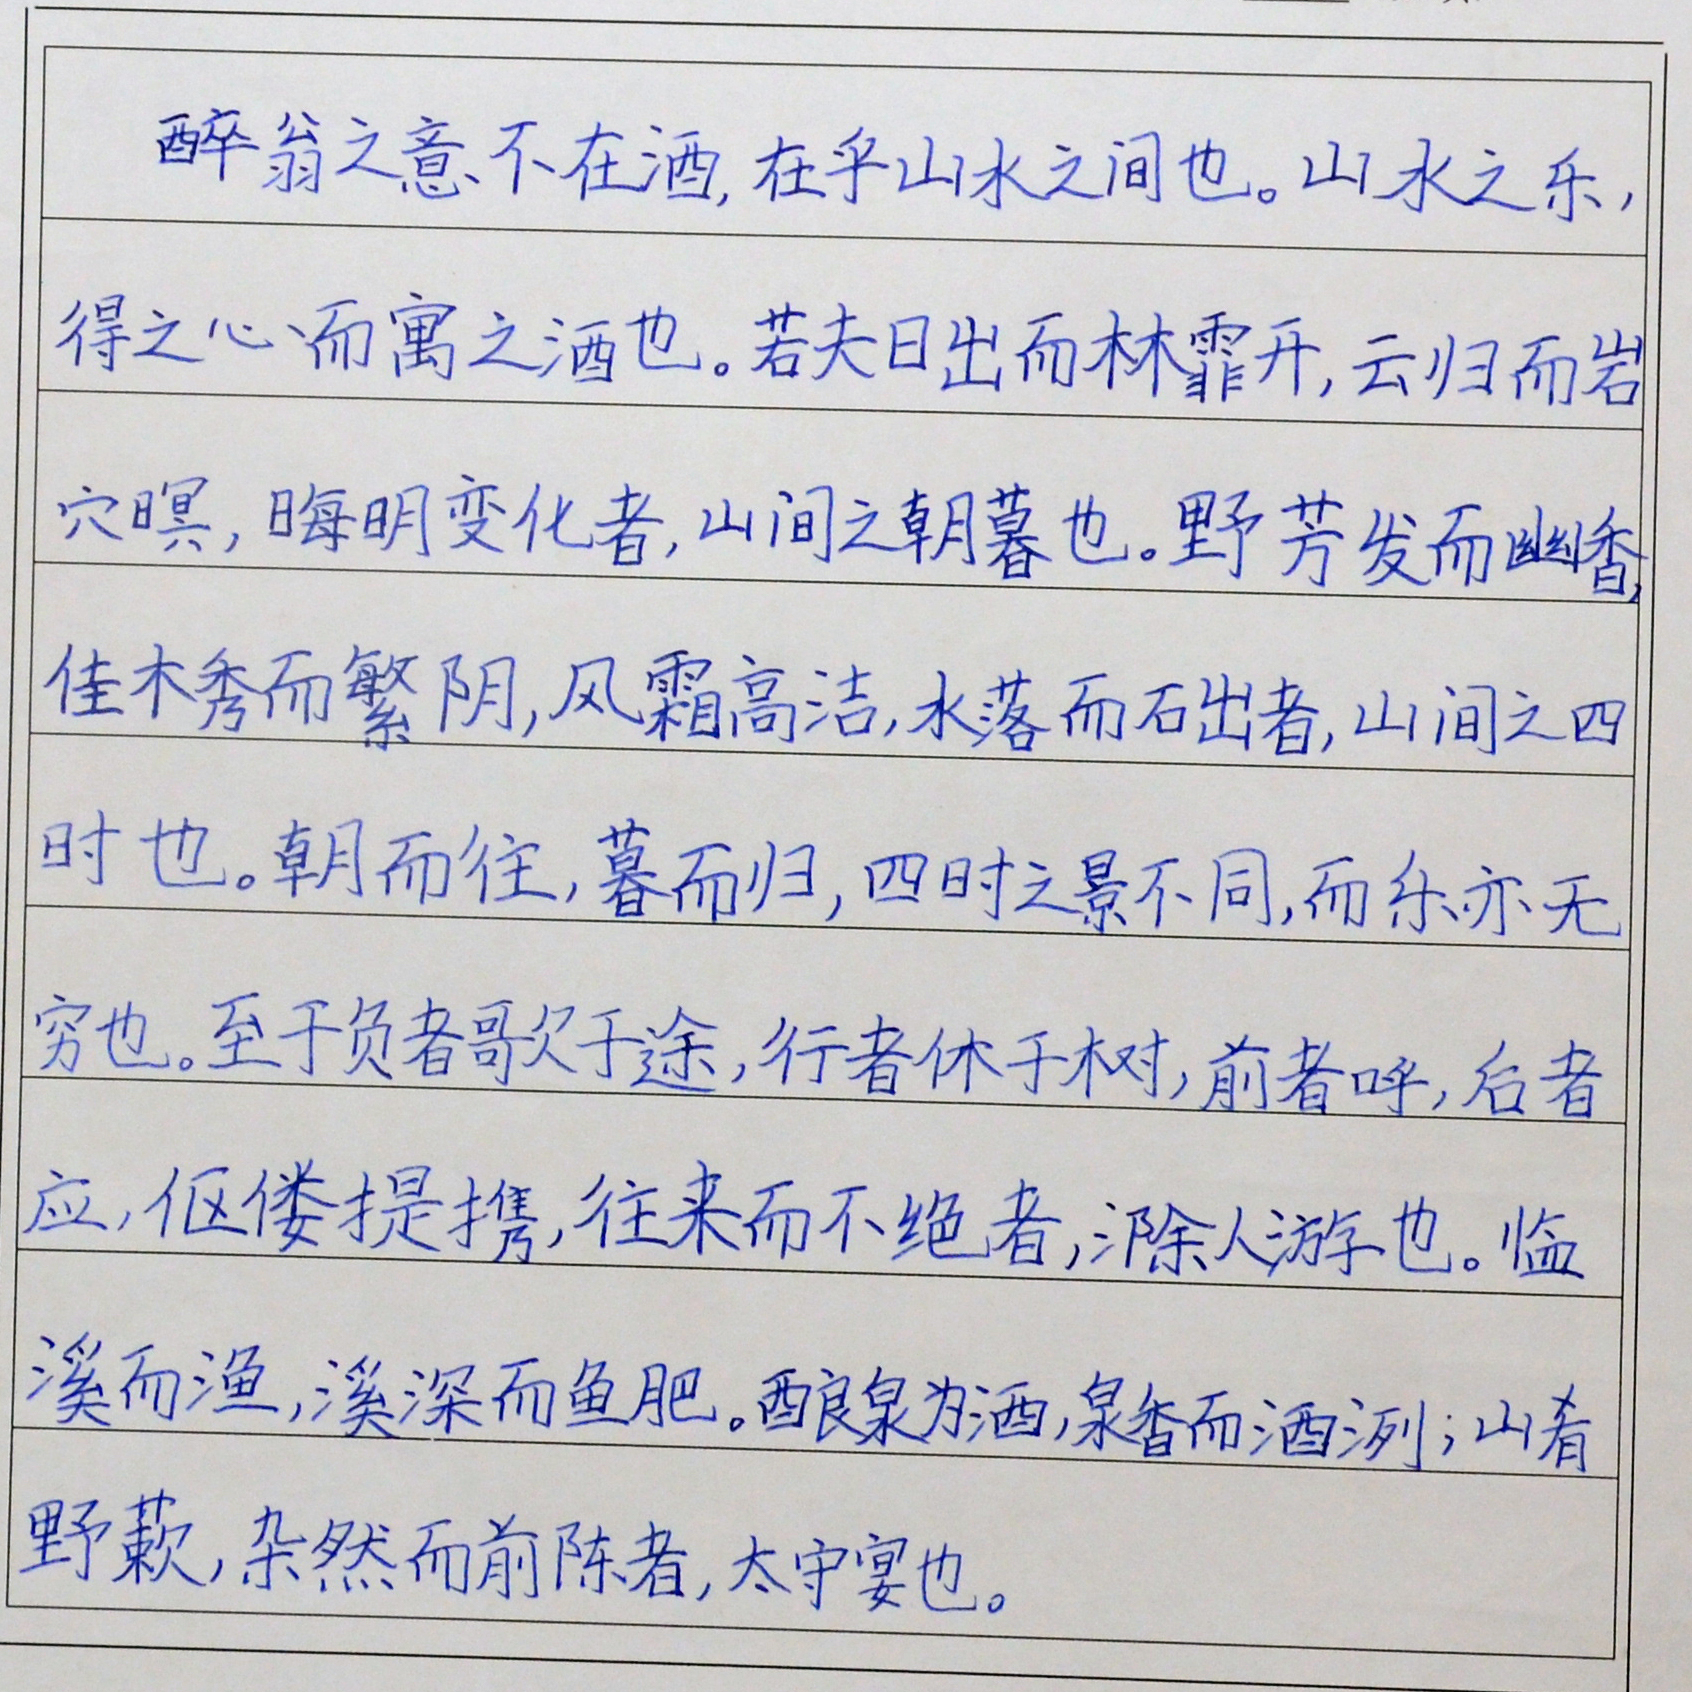 醉翁之意不在酒,在乎山水之间也。山水之乐,
得之心而寓之酒也。若夫日出而林霏开,云归而岩
穴暝,晦明变化者,山间之朝暮也。野芳发而幽香,
佳木秀而繁阴,风霜高洁,水落而石出者,山间之四
时也。朝而往,暮而归,四时之景不同,而乐亦无
穷也。至于负者歌于途,行者休于树,前者呼,后者
应,伛偻提携,往来而不绝者,滁人游也。临
溪而渔,溪深而鱼肥。酿泉为酒,泉香而酒洌;山肴
野蔌,杂然而前陈者,太守宴也。